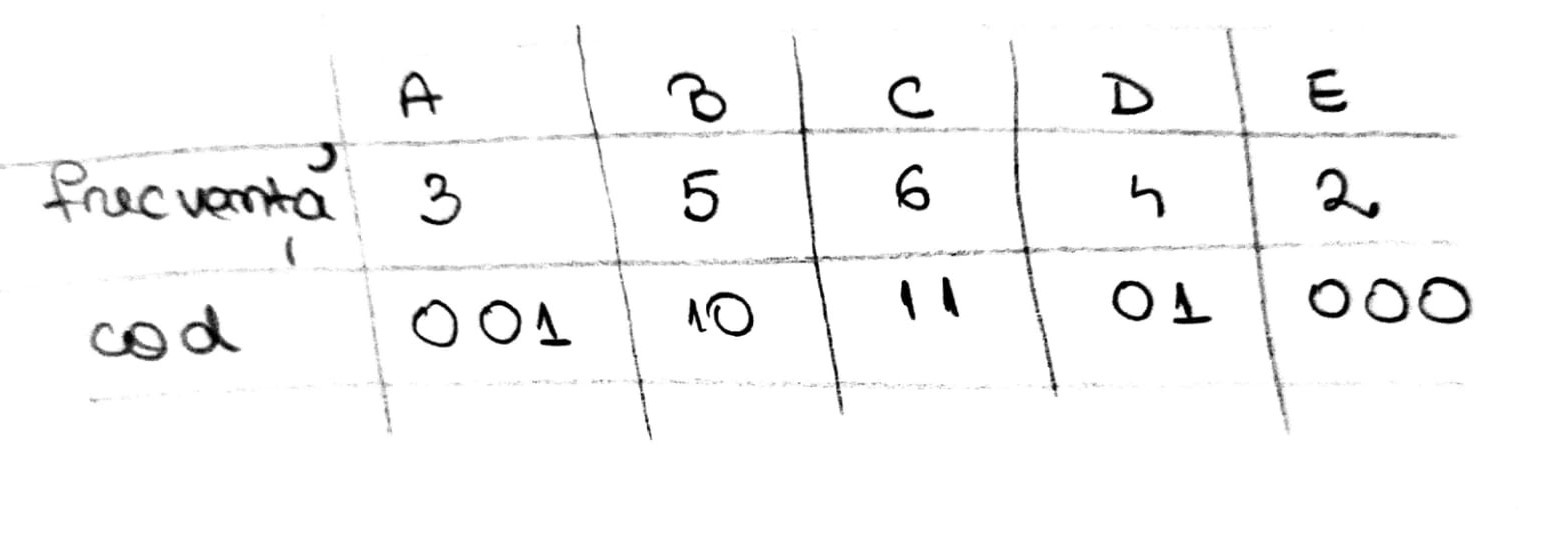 A B C D E
frecvență 3 5 6 4 2
cod 001 10 11 01 000